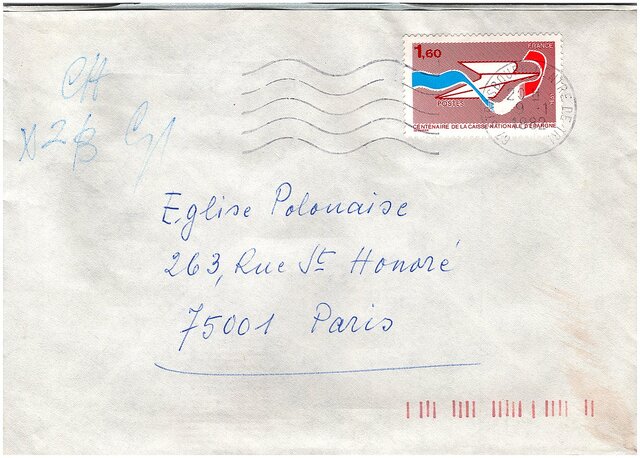 CH
1,60
FRANCE
POSTES
CENTENAIRE DE LA CAISSE NATIONALE D'ÉPARGNE
1982
Eglise Polonaise
263, Rue St Honoré
75001 Paris